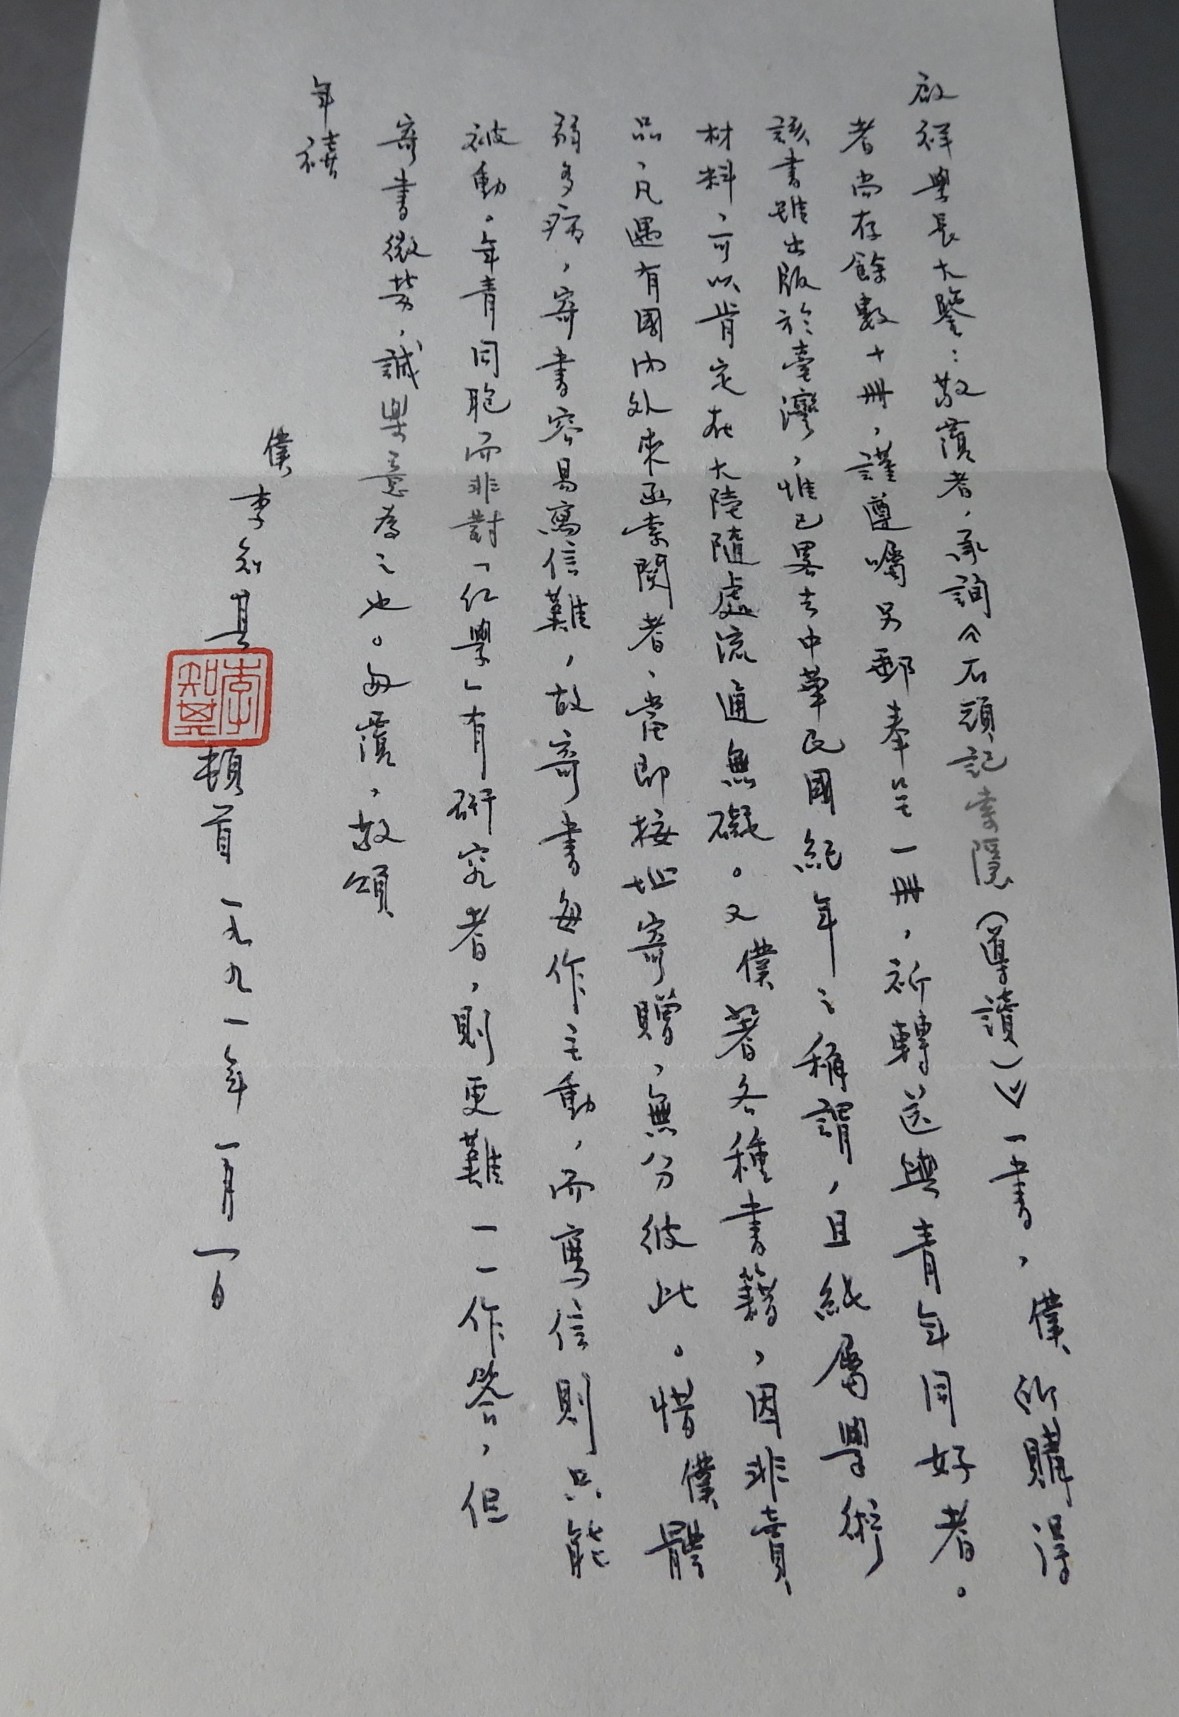 啟祥學長大鑒：敬覆者，承詢《石頭記索隱（導讀）》一書，僕所購得
者尚存餘數十冊，謹遵囑另郵奉呈一冊，祈轉送與青年同好者。
該書雖出版於臺灣，惟已畧去中華民國紀年之稱謂，且純屬學術
材料，可以肯定在大陸隨處流通無礙。又僕著各種書籍，因非賣
品，凡遇有國內外來函索閱者，當即按址寄贈，無分彼此。惜僕體
弱多病，寄書容易寫信難，故寄書每作主動，而寫信則只能
被動。年青同胞而非對「红學」有研究者，則更難一一作答，但
寄書微勞，誠樂意為之也。匆覆，敬頌
年禧
僕李知其頓首 一九九一年一月一日
李知其